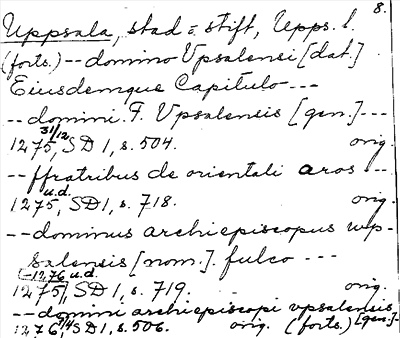 8.
Uppsala, stad o. stift, Upps. l.
(forts.) -- domino Vpsalensi [dat.]
Eiusdemque Capitulo ---
-- domini. F. Vpsalensis [gen.] ---
1275 31/12, SD 1, s. 504. orig.
-- ffratribus de orientali aros ---
1275, u.d. SD 1, s. 718. orig.
-- dominus archiepiscopus wp-
salensis [nom.]. fulco ---
(-1276 u.d.
1275), SD 1, s. 719. orig.
-- domini archiepiscopi vpsalensis [gen.] --
1276, SD 1, s. 506. orig. (forts.)